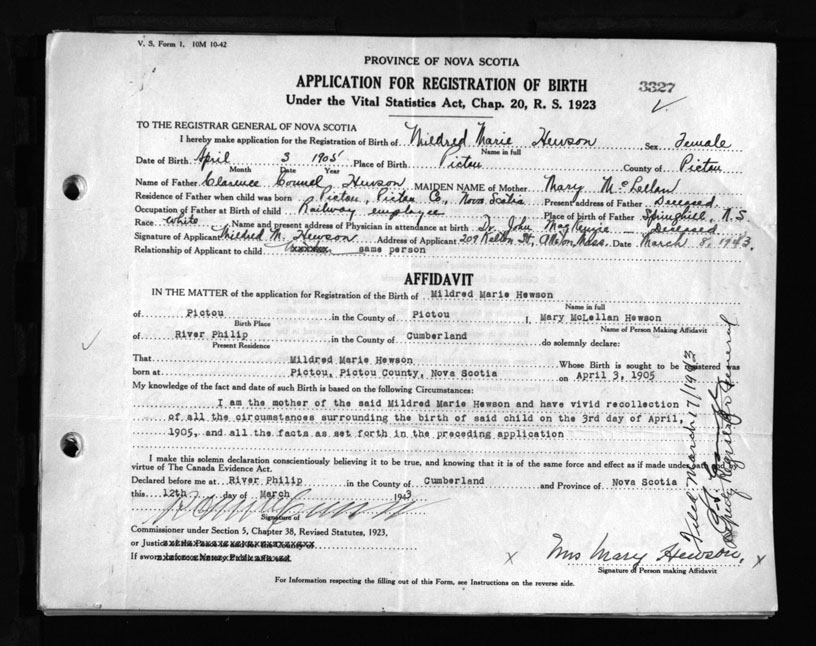 V. S. Form 1, 10M 10-42
PROVINCE OF NOVA SCOTIA
APPLICATION FOR REGISTRATION OF BIRTH
3327
Under the Vital Statistics Act, Chap. 20, R. S. 1923
TO THE REGISTRAR GENERAL OF NOVA SCOTIA
I hereby make application for the Registration of Birth of Mildred Marie Hewson Sex Female
Name in full
Date of Birth April 3 1905 Place of Birth Pictou County of Pictou
Month Date Year
Name of Father Clarence Hewson MAIDEN NAME of Mother Mary McLellan
Residence of Father when child was born Pictou, Pictou Co., Nova Scotia Present address of Father Deceased
Occupation of Father at Birth of child Railway employee Place of birth of Father Springhill, N.S.
Race White Name and present address of Physician in attendance at birth Dr. John MacKenzie — Deceased
Signature of Applicant Mildred M. Hewson Address of Applicant 209 Kelton St., Mass. Date March 8, 1943.
Relationship of Applicant to child same person
AFFIDAVIT
IN THE MATTER of the application for Registration of the Birth of Mildred Marie Hewson
Name in full
of Pictou in the County of Pictou I, Mary McLellan Hewson
Birth Place Name of Person Making Affidavit
of River Philip in the County of Cumberland do solemnly declare:
Present Residence
That Mildred Marie Hewson Whose Birth is sought to be registered was
born at Pictou, Pictou County, Nova Scotia on April 3, 1905
My knowledge of the fact and date of such Birth is based on the following Circumstances:
I am the mother of the said Mildred Marie Hewson and have vivid recollection
of all the circumstances surrounding the birth of said child on the 3rd day of April,
1905, and all the facts as set forth in the preceding application
I make this solemn declaration conscientiously believing it to be true, and knowing that it is of the same force and effect as if made under oath by
virtue of The Canada Evidence Act.
Declared before me at River Philip in the County of Cumberland and Province of Nova Scotia
this 12th day of March 1943
Signature of
Commissioner under Section 5, Chapter 38, Revised Statutes, 1923,
or Justice
If sworn before a Notary Public affix seal
x Mrs Mary Hewson, x
Signature of Person making Affidavit
For Information respecting the filling out of this Form, see Instructions on the reverse side.
Filed March 17/1943
Deputy Registrar General